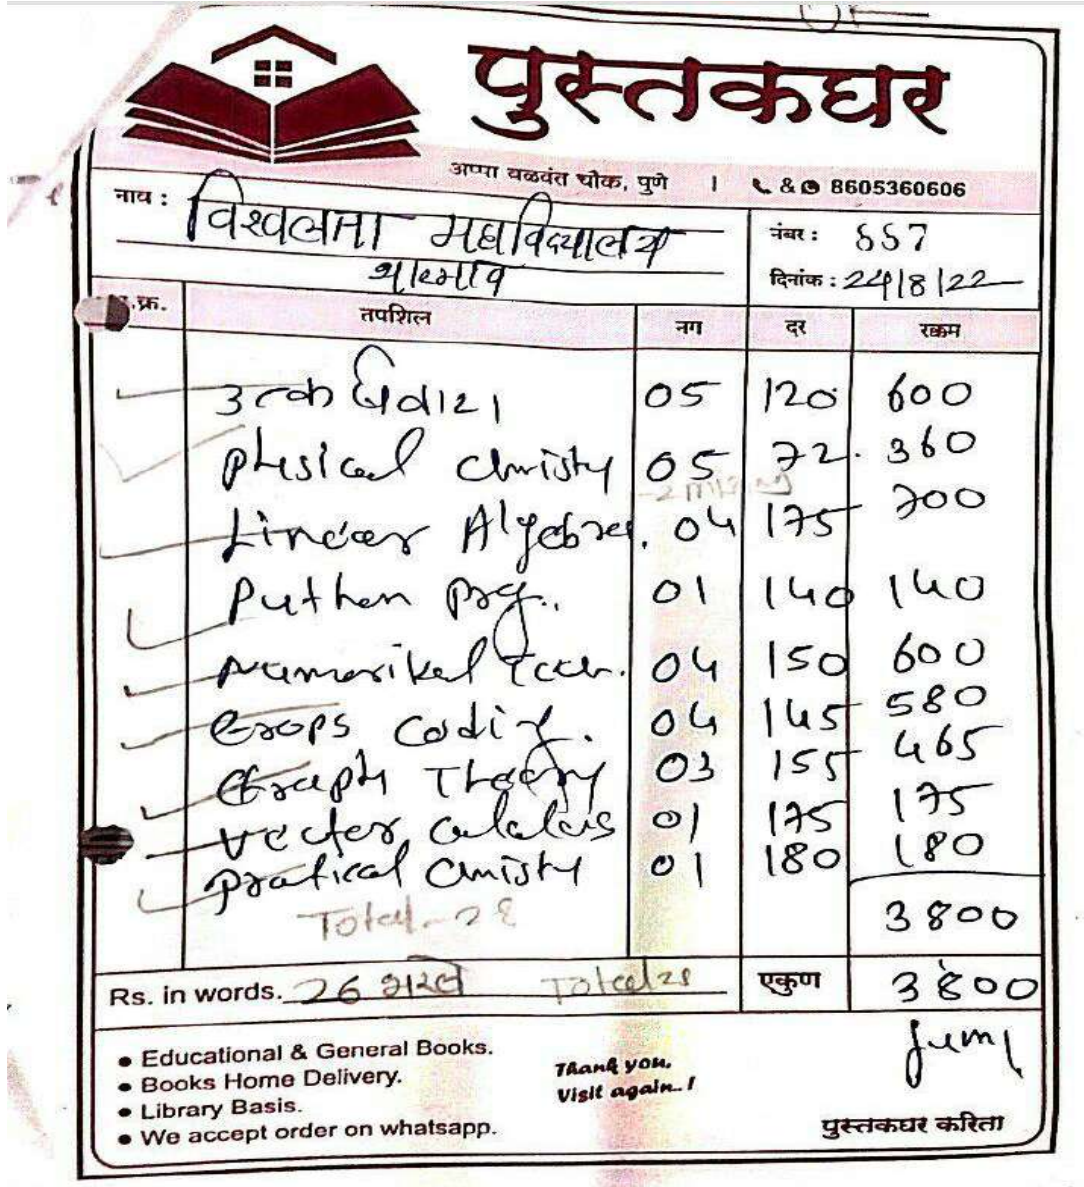 पुस्तकघर
अप्पा बळवंत चौक, पुणे | & 8605360606
नाव : विश्वलता महाविद्यालय
नंबर : 557
दिनांक : 24/8/22
.क्र. तपशिल नग दर रक्कम
05 120 600
Phsical Chmisty 05 72. 360
Linear Algebra. 04 175 700
Puthen Prg.. 01 140 140
Numerikal Tech. 04 150 600
Erops Coding. 04 145 580
Graph Theory 03 155 465
Vecter Calculus 01 175 175
Pratical Chmisty 01 180 180
Total - 28 3800
Rs. in words. 26 Total 28 एकुण 3800
• Educational & General Books.
• Books Home Delivery.
• Library Basis.
• We accept order on whatsapp.
Thank you,
Visit again..!
पुस्तकघर करिता